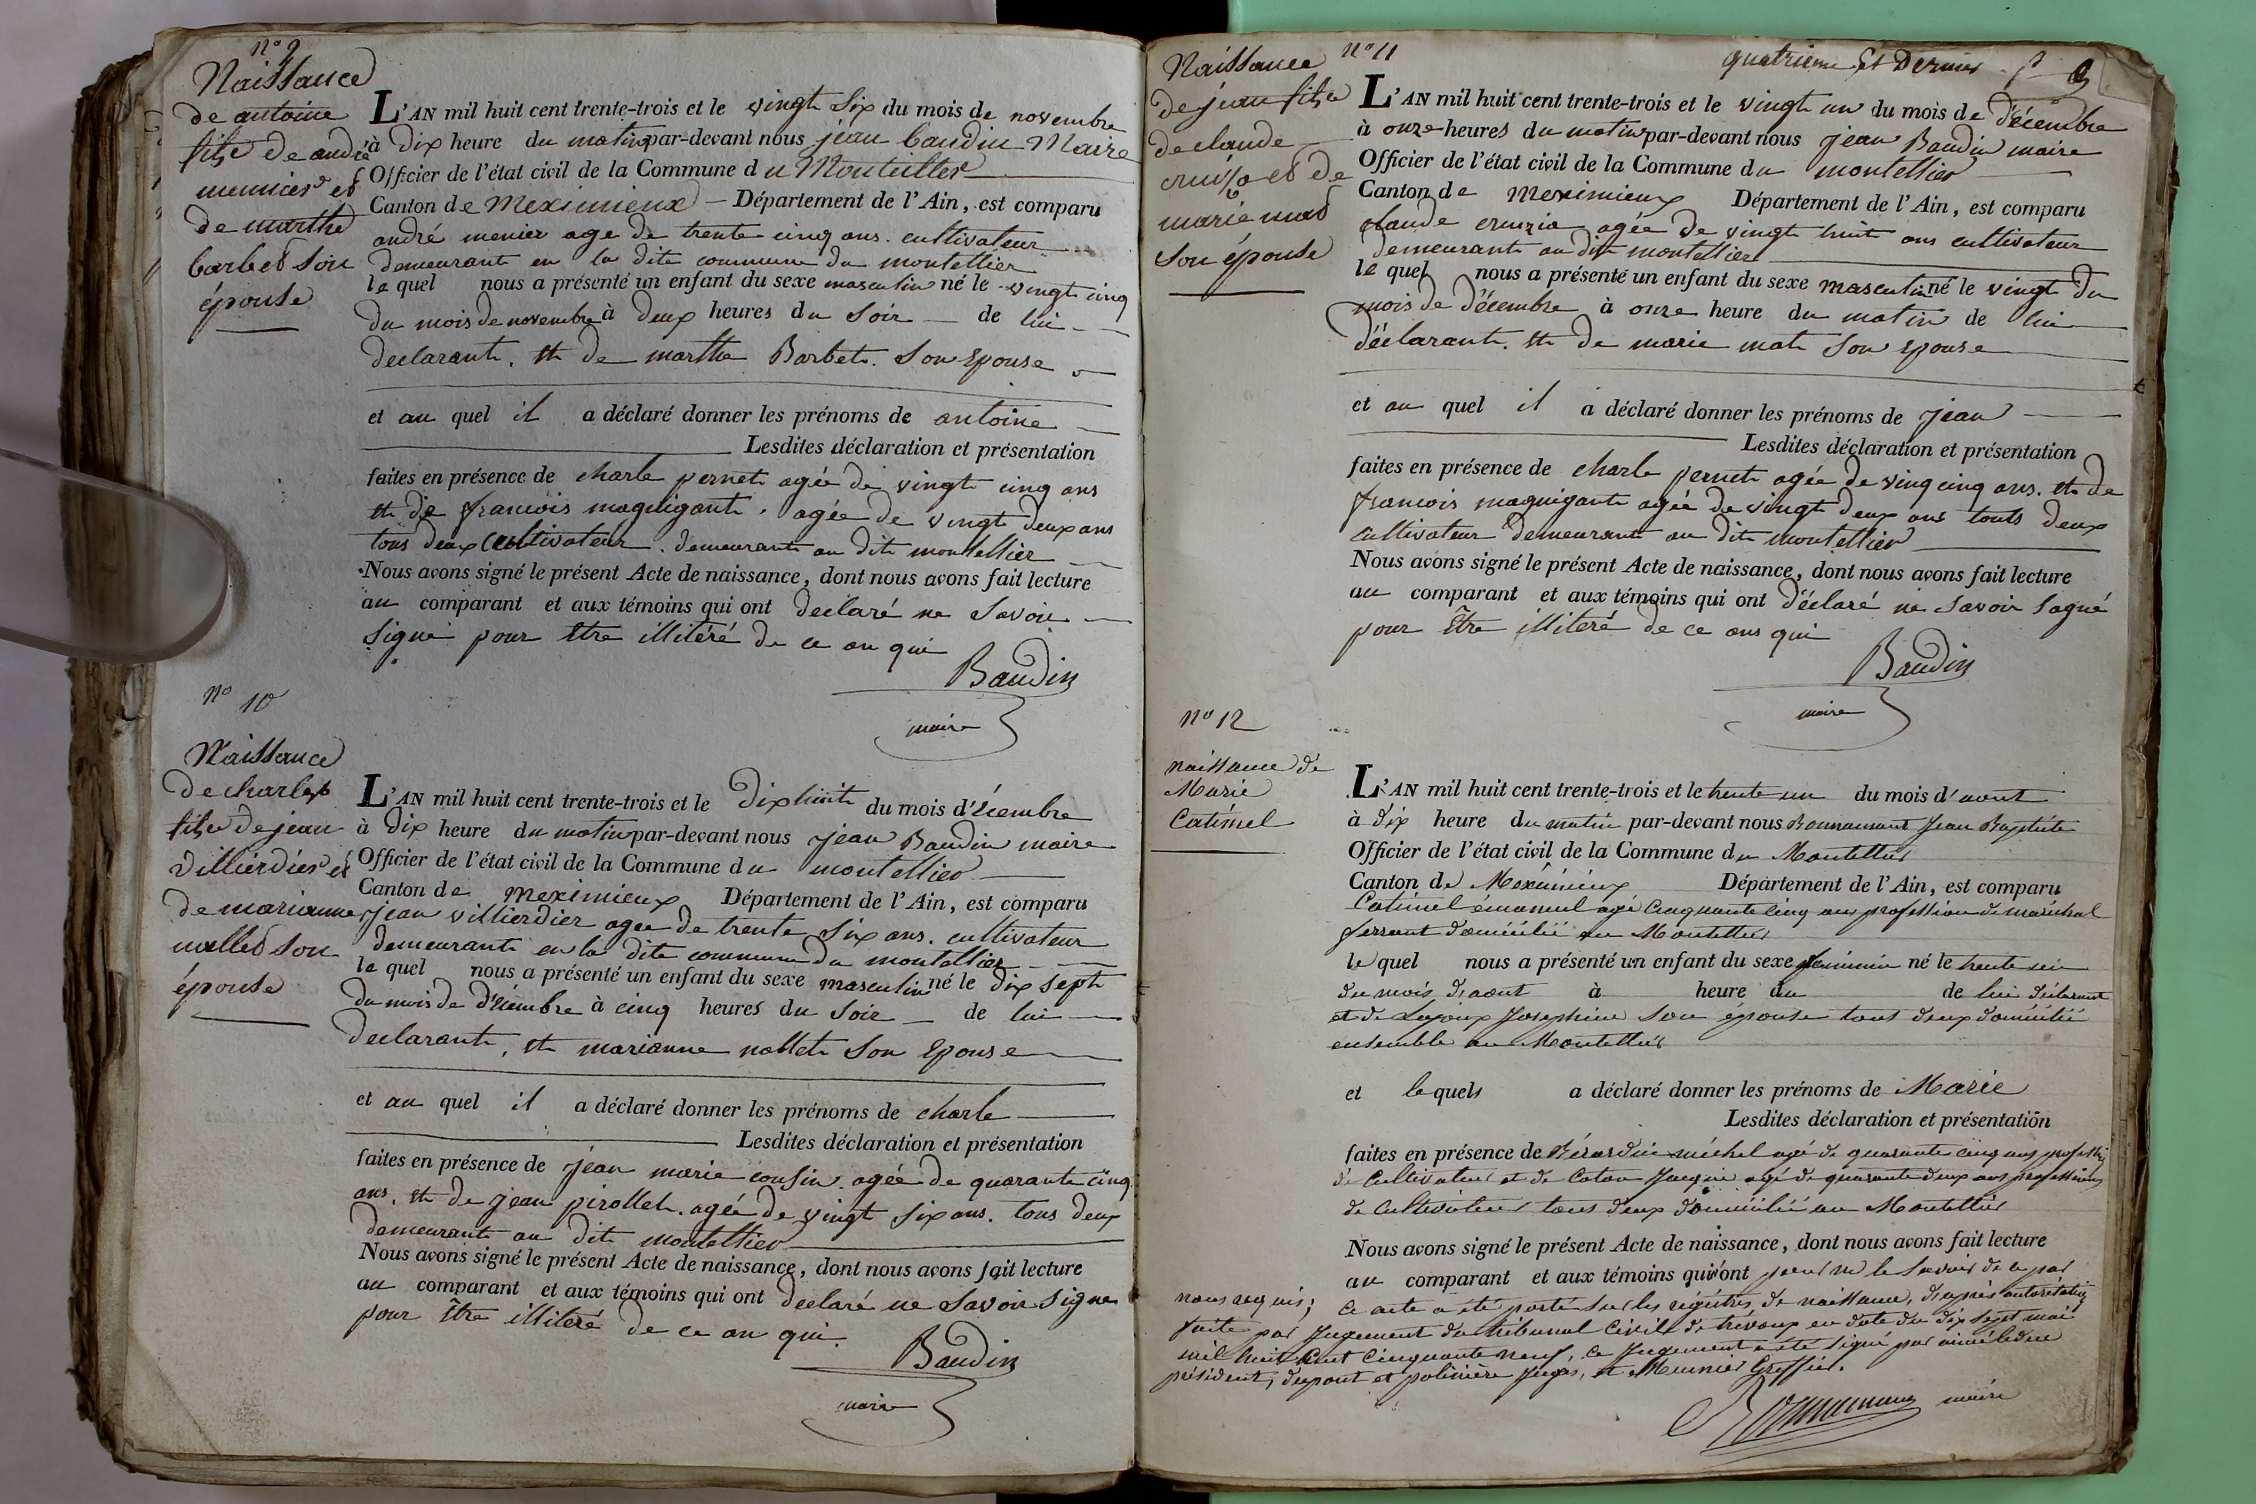 n° 9
Naissance
de antoine
fils de andré
meunier et
de marthe
barbet son
épouse
L'AN mil huit cent trente-trois et le vingt six du mois de novembre
à dix heure du matin par-devant nous jean baudin Maire
Officier de l'état civil de la Commune du Montellier
Canton de Meximieux – Département de l'Ain, est comparu
andré menier age de trente cinq ans. cultivateur
demeurant en la dite commune du montellier
lequel nous a présenté un enfant du sexe masculin né le vingt cinq
du mois de novembre à deux heures du soir – de lui
declarant. et de marthe Barbet. son Epouse
et au quel il a déclaré donner les prénoms de antoine
Lesdites déclaration et présentation
faites en présence de charle pernet agée de vingt cinq ans
et de francois magnigant. agée de vingt deux ans
tous deux Cultivateur. demeurant au dit montellier
Nous avons signé le présent Acte de naissance, dont nous avons fait lecture
au comparant et aux témoins qui ont declaré ne savoir
signé pour être illitéré de ce an qui
Baudin
maire
n° 10
Naissance
de charles
fils de jean
villierdier et
de marianne
nallet son
épouse
L'AN mil huit cent trente-trois et le dixhuit du mois d'écembre
à dix heure du matin par-devant nous jean Baudin maire
Officier de l'état civil de la Commune du montellier
Canton de meximieux Département de l'Ain, est comparu
jean villierdier agee de trente six ans. cultivateur
demeurant en la dite commune du montellier
lequel nous a présenté un enfant du sexe masculin né le dix sept
du mois de d'écembre à cinq heures du soir – de lui
declarant, et marianne nallet son Epouse
et au quel il a déclaré donner les prénoms de charle
Lesdites déclaration et présentation
faites en présence de jean marie cousin. agée de quarante cinq
ans. et de jean pirollet. agée de vingt six ans. tous deux
demeurant au dit montellier
Nous avons signé le présent Acte de naissance, dont nous avons fait lecture
au comparant et aux témoins qui ont declaré ne savoir signe
pour être illiteré de ce an qui.
Baudin
maire
quatrieme et Dernier
n° 11
Naissance
de jean fils
de claude
cruizia et de
marie mat
son épouse
L'AN mil huit cent trente-trois et le vingt un du mois de d'écembre
à onze heures du matin par-devant nous jean Baudin maire
Officier de l'état civil de la Commune du montellier
Canton de meximieux Département de l'Ain, est comparu
claude cruzia agée de vingt huit ans cultivateur
demeurant au dit montellier
lequel nous a présenté un enfant du sexe masculin né le vingt du
mois de d'écembre à onze heure du matin de lui
déclarant. et de marie mat son epouse
et au quel il a déclaré donner les prénoms de jean
Lesdites déclaration et présentation
faites en présence de charle pernet agée de ving cinq ans. et de
francois magnigant agée de vingt deux ans touts deux
cultivateur demeurant au dit montellier
Nous avons signé le présent Acte de naissance, dont nous avons fait lecture
au comparant et aux témoins qui ont déclaré ne savoir signé
pour être illiteré de ce ans qui
Baudin
maire
n° 12
naissance de
Marie
Catimel
L'AN mil huit cent trente-trois et le trente un du mois d'aout
à dix heure du matin par-devant nous Bonnamant Jean Baptiste
Officier de l'état civil de la Commune du Montellier
Canton de Meximieux Département de l'Ain, est comparu
Catimel émanuel agé Cinquante cinq ans profession de maréchal
ferrant domicilié au Montellier
lequel nous a présenté un enfant du sexe féminin né le trente un
du mois d'aout à heure du de lui déclarant
et de Josephine son épouse tout deux domicilié
ensemble au Montellier
et lequels a déclaré donner les prénoms de Marie
Lesdites déclaration et présentation
faites en présence de Bérardin michel agé de quarante cinq ans profession
de Cultivateur et de agé de quarante deux ans profession
de Cultivateur tous deux domicilié au Montellier
Nous avons signé le présent Acte de naissance, dont nous avons fait lecture
au comparant et aux témoins qui ont pour ne le savoir de ce par
nous requis; Ce acte a été porté sur les régistres de naissance, d'après autorisation
faite par Jugement du tribunal Civil de trévoux en date du dix sept mai
mil huit cent Cinquante neuf, ce Jugement a été signé par
président, dupont et polinière Juges, et Meunier Greffier.
Bonnamant maire